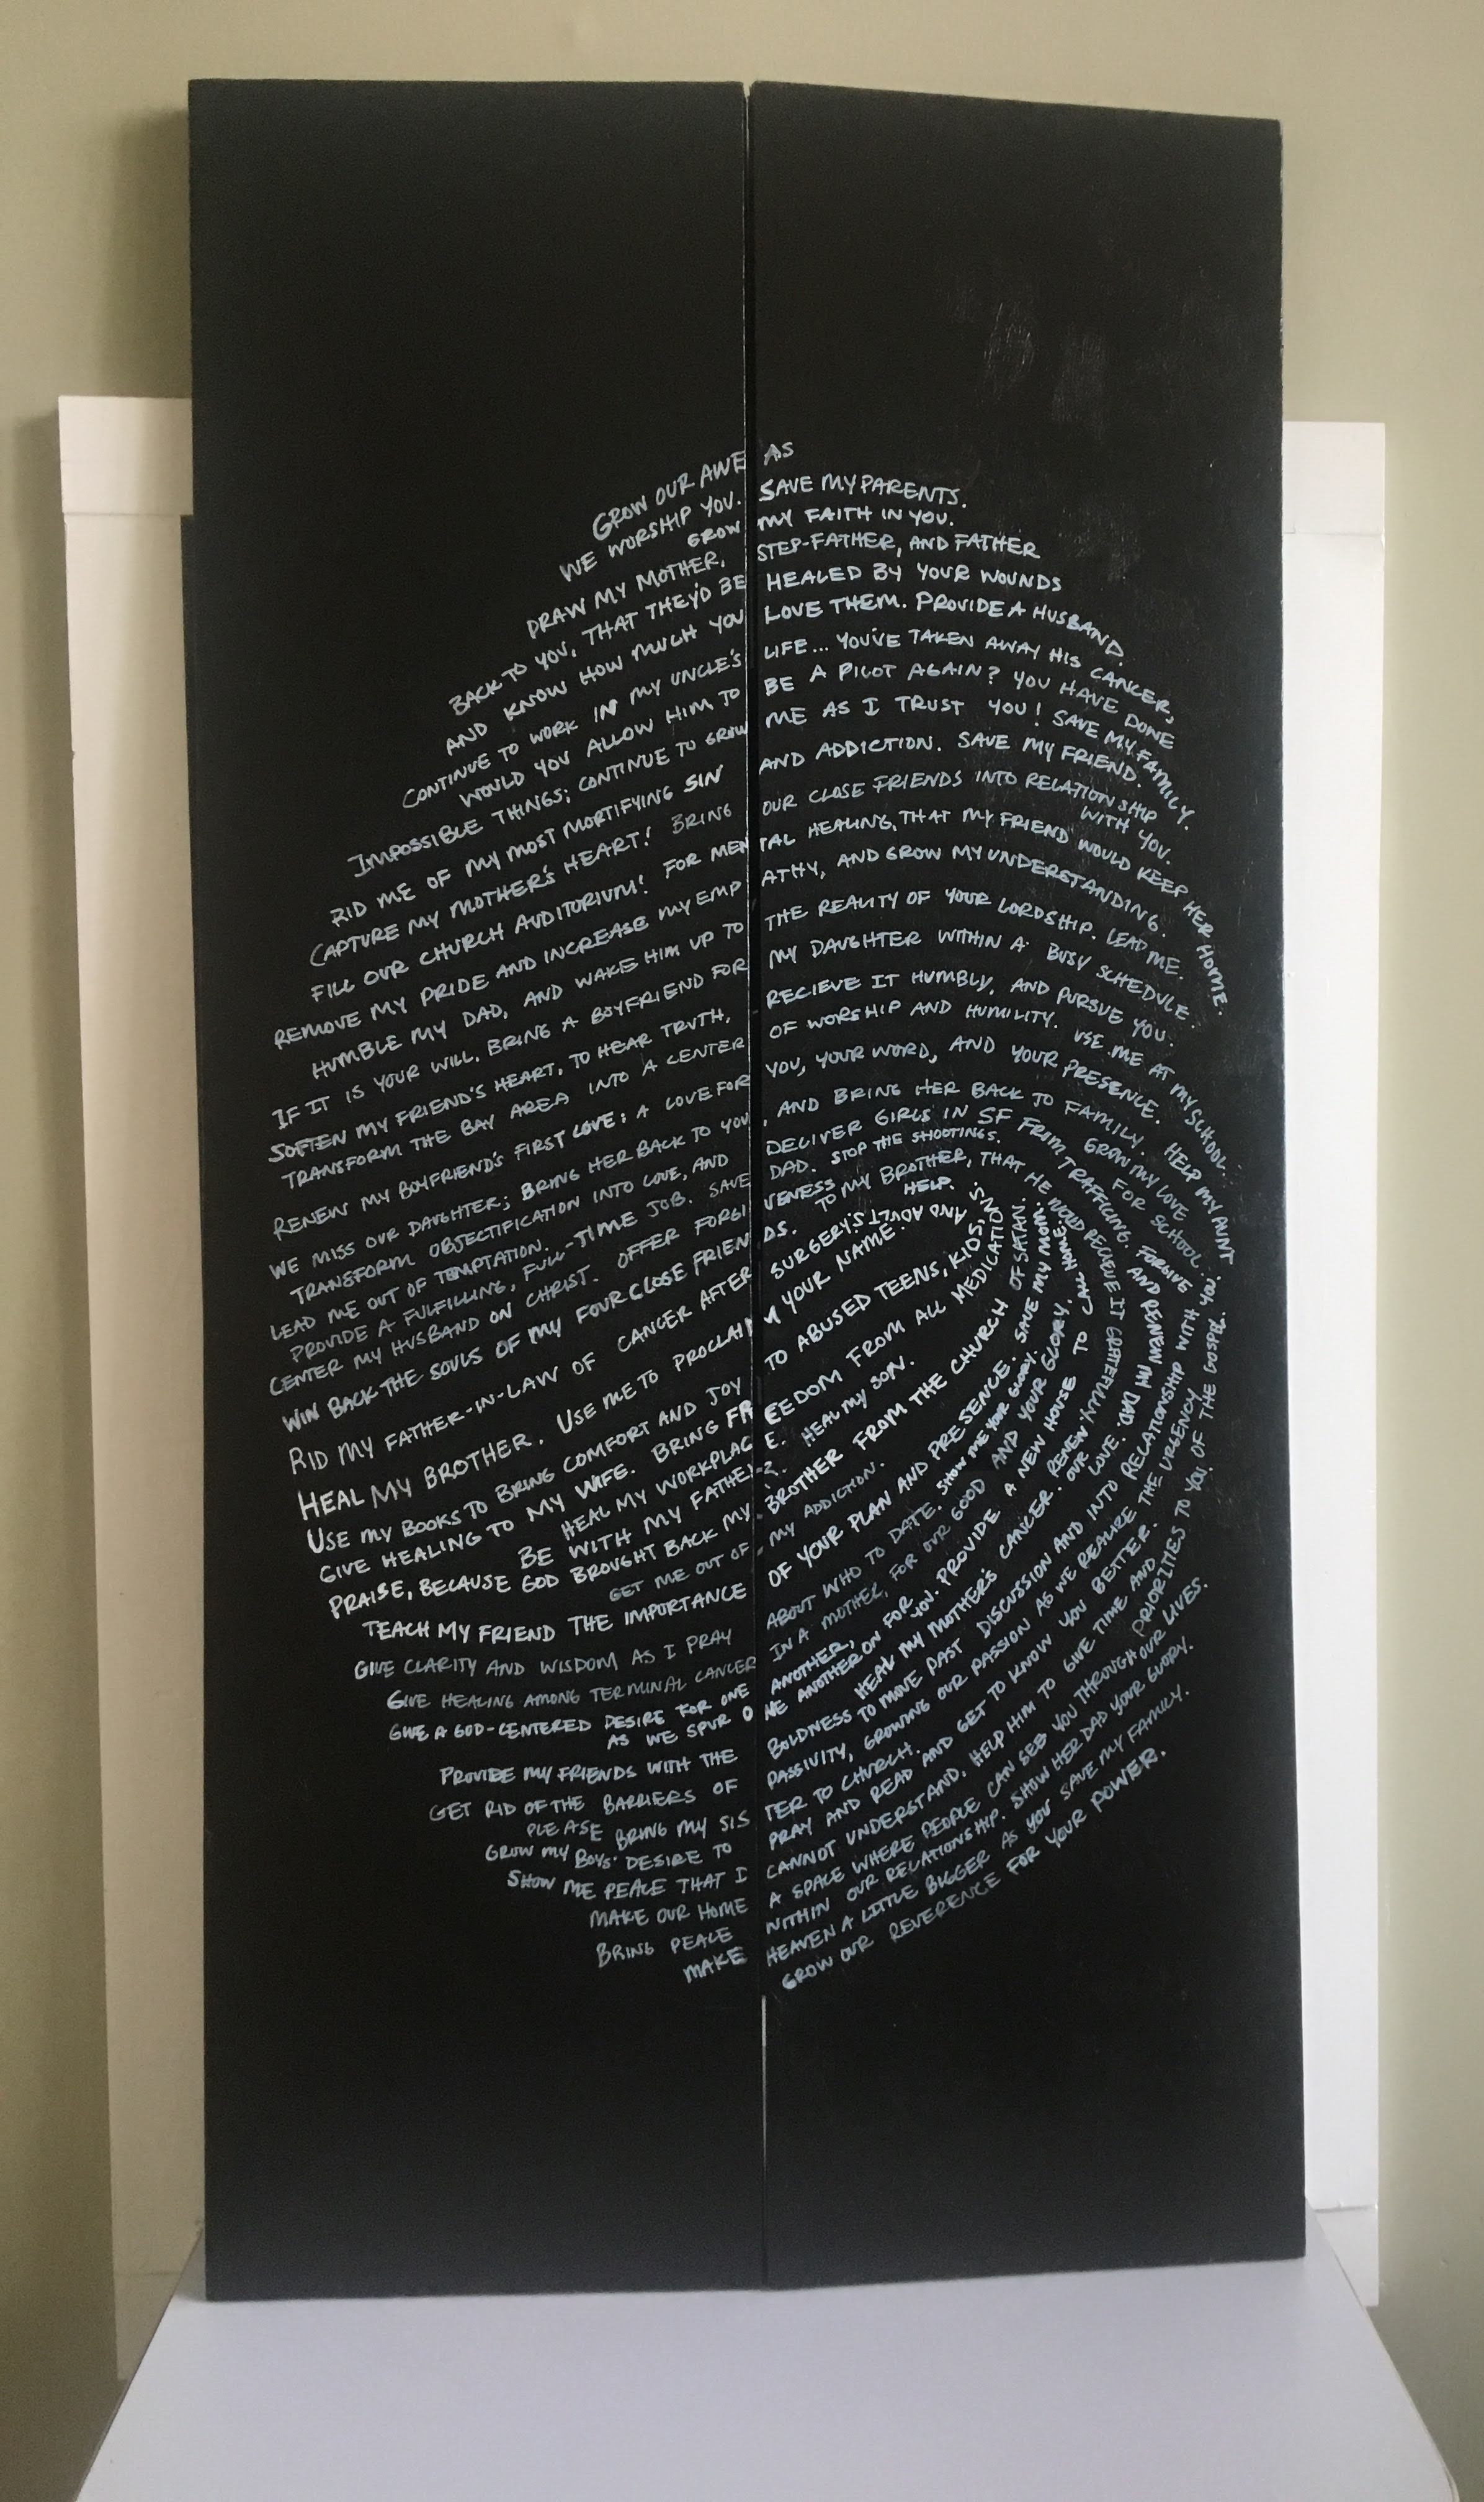 GROW OUR AWE AS
WE WORSHIP YOU. SAVE MY PARENTS.
GROW MY FAITH IN YOU.
DRAW MY MOTHER, STEP-FATHER, AND FATHER
BACK TO YOU, THAT THEY'D BE HEALED BY YOUR WOUNDS
AND KNOW HOW MUCH YOU LOVE THEM. PROVIDE A HUSBAND.
CONTINUE TO WORK IN MY UNCLE'S LIFE... YOU'VE TAKEN AWAY HIS CANCER,
WOULD YOU ALLOW HIM TO BE A PILOT AGAIN? YOU HAVE DONE
IMPOSSIBLE THINGS; CONTINUE TO GROW ME AS I TRUST YOU! SAVE MY FAMILY.
RID ME OF MY MOST MORTIFYING SIN AND ADDICTION. SAVE MY FRIEND.
CAPTURE MY MOTHER'S HEART! BRING OUR CLOSE FRIENDS INTO RELATIONSHIP
WITH YOU.
FILL OUR CHURCH AUDITORIUM! FOR MENTAL HEALING, THAT MY FRIEND WOULD KEEP HER HOME.
REMOVE MY PRIDE AND INCREASE MY EMPATHY, AND GROW MY UNDERSTANDING.
HUMBLE MY DAD, AND WAKE HIM UP TO THE REALITY OF YOUR LORDSHIP. LEAD ME.
IF IT IS YOUR WILL, BRING A BOYFRIEND FOR MY DAUGHTER WITHIN A BUSY SCHEDULE.
SOFTEN MY FRIEND'S HEART, TO HEAR TRUTH, RECIEVE IT HUMBLY, AND PURSUE YOU.
TRANSFORM THE BAY AREA INTO A CENTER OF WORSHIP AND HUMILITY. USE ME AT MY SCHOOL.
RENEW MY BOYFRIEND'S FIRST LOVE: A LOVE FOR YOU, YOUR WORD, AND YOUR PRESENCE. HELP MY AUNT
WE MISS OUR DAUGHTER; BRING HER BACK TO YOU, AND BRING HER BACK TO FAMILY. GROW MY LOVE FOR SCHOOL
TRANSFORM OBJECTIFICATION INTO LOVE, AND DELIVER GIRLS IN SF FROM TRAFFICING. FORGIVE
LEAD ME OUT OF TEMPTATION.
PROVIDE A FULFILLING, FULL-TIME JOB. SAVE DAD. STOP THE SHOOTINGS.
CENTER MY HUSBAND ON CHRIST. OFFER FORGIVENESS TO MY BROTHER, THAT HE WOULD RECIEVE IT
WIN BACK THE SOULS OF MY FOUR CLOSE FRIENDS. HELP.
RID MY FATHER-IN-LAW OF CANCER AFTER SURGERY.
HEAL MY BROTHER. USE ME TO PROCLAIM YOUR NAME.
USE MY BOOKS TO BRING COMFORT AND JOY TO ABUSED TEENS, KIDS, AND ADULTS.
GIVE HEALING TO MY WIFE. BRING FREEDOM FROM ALL MEDICATIONS.
HEAL MY WORKPLACE. HEAL MY SON.
BE WITH MY FATHER.
PRAISE, BECAUSE GOD BROUGHT BACK MY BROTHER FROM THE CHURCH OF SATAN.
GET ME OUT OF MY ADDICTION.
TEACH MY FRIEND THE IMPORTANCE OF YOUR PLAN AND PRESENCE. SAVE MY MOM.
GIVE CLARITY AND WISDOM AS I PRAY ABOUT WHO TO DATE. SHOW ME YOUR GLORY.
GIVE HEALING AMONG TERMINAL CANCER IN A MOTHER, FOR OUR GOOD AND YOUR GLORY.
GIVE A GOD-CENTERED DESIRE FOR ONE ANOTHER,
AS WE SPUR ONE ANOTHER ON FOR YOU. PROVIDE A NEW HOUSE TO CALL HOME.
HEAL MY MOTHER'S CANCER. RENEW
PROVIDE MY FRIENDS WITH THE BOLDNESS TO MOVE PAST DISCUSSION AND INTO RELATIONSHIP WITH YOU.
GET RID OF THE BARRIERS OF PASSIVITY, GROWING OUR PASSION AS WE REALIZE THE URGENCY OF THE GOSPEL.
PLEASE BRING MY SISTER TO CHURCH.
GROW MY BOYS' DESIRE TO PRAY AND READ AND GET TO KNOW YOU BETTER.
SHOW ME PEACE THAT I CANNOT UNDERSTAND. HELP HIM TO GIVE TIME AND PRIORITIES TO YOU.
MAKE OUR HOME A SPACE WHERE PEOPLE CAN SEE YOU THROUGH OUR LIVES.
BRING PEACE WITHIN OUR RELATIONSHIP. SHOW HER DAD YOUR GLORY.
MAKE HEAVEN A LITTLE BIGGER AS YOU SAVE MY FAMILY.
GROW OUR REVERENCE FOR YOUR POWER.